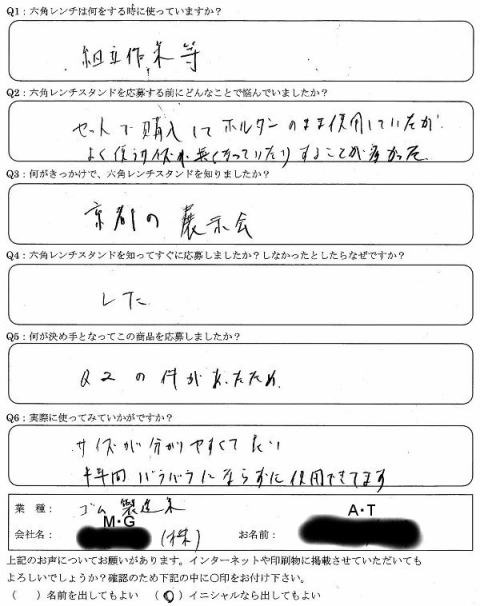 Q1：六角レンチは何をする時に使っていますか？
組立作業等
Q2：六角レンチスタンドを応募する前にどんなことで悩んでいましたか？
セットで購入してホルダーのまま使用していたが
よく使うサイズが無くなっていたりすることが多かった
Q3：何がきっかけで、六角レンチスタンドを知りましたか？
京都の展示会
Q4：六角レンチスタンドを知ってすぐに応募しましたか？しなかったとしたらなぜですか？
した
Q5：何が決め手となってこの商品を応募しましたか？
Q2の件があったため
Q6：実際に使ってみていかがですか？
サイズが分かりやすくて良い
半年間バラバラにならずに使用できてます
業 種： ゴム製造業
M・G A・T
会社名： (株) お名前：
上記のお声についてお願いがあります。インターネットや印刷物に掲載させていただいても
よろしいでしょうか？確認のため下記の中に〇印をお付け下さい。
（ ）名前を出してもよい （〇）イニシャルなら出してもよい